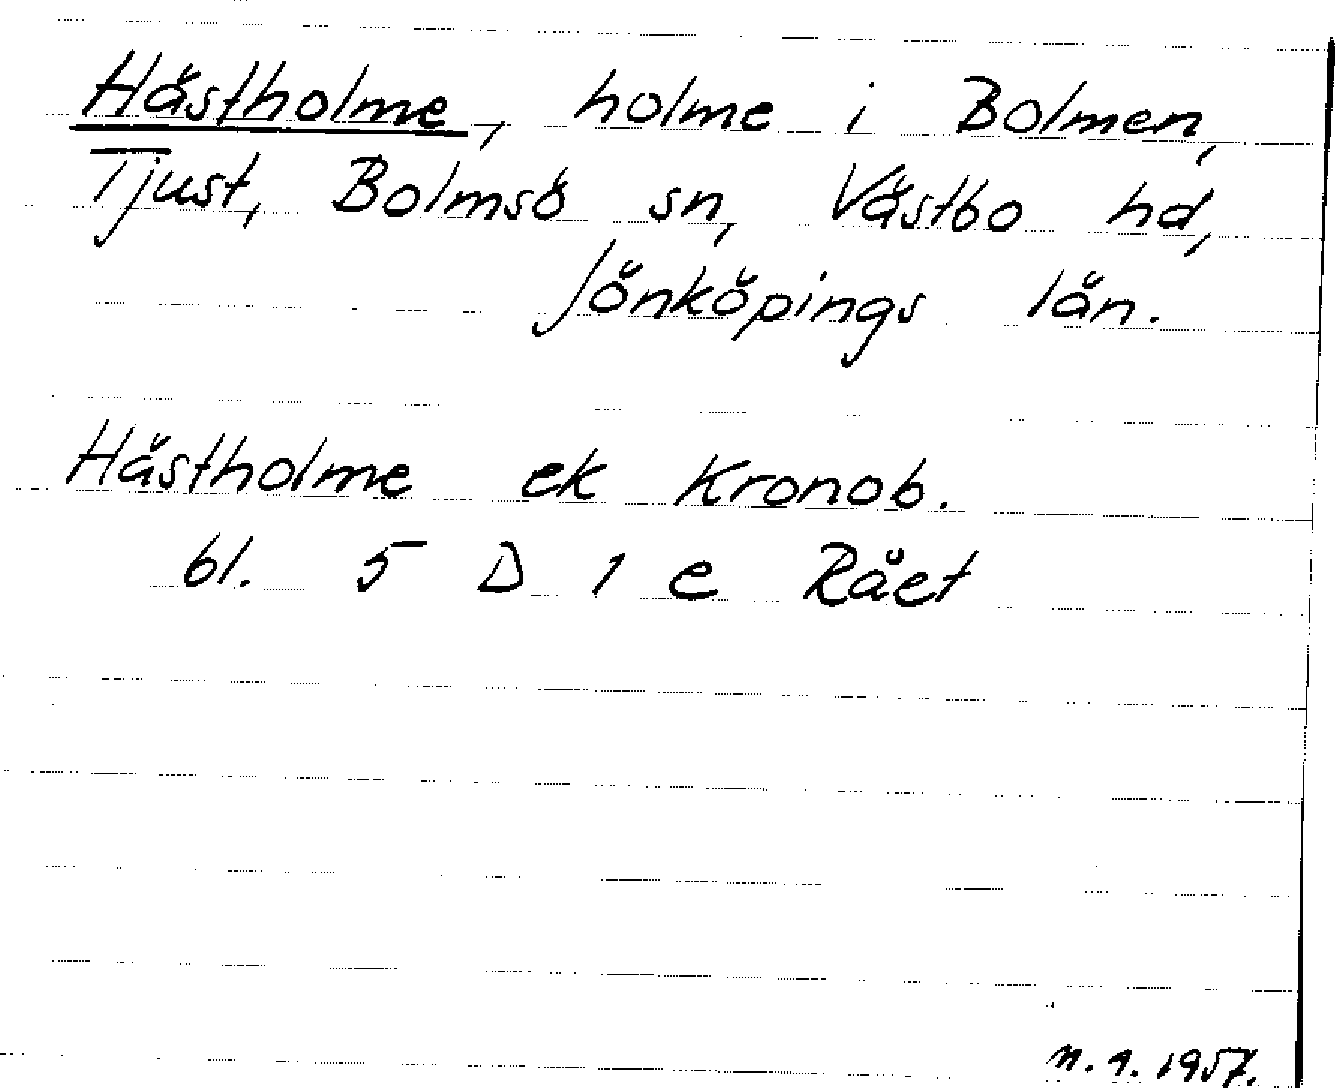 Hästholme, holme i Bolmen,
Tjust, Bolmsö sn, Västbo hd,
Jönköpings län.
Hästholme ek Kronob.
bl. 5 D 1 e Rået
1957.